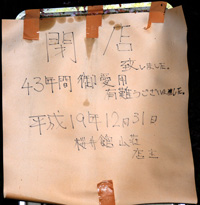 閉店
致しました。
43年間御愛用
有難うございました。
平成19年12月31日
桜井館山荘
店主